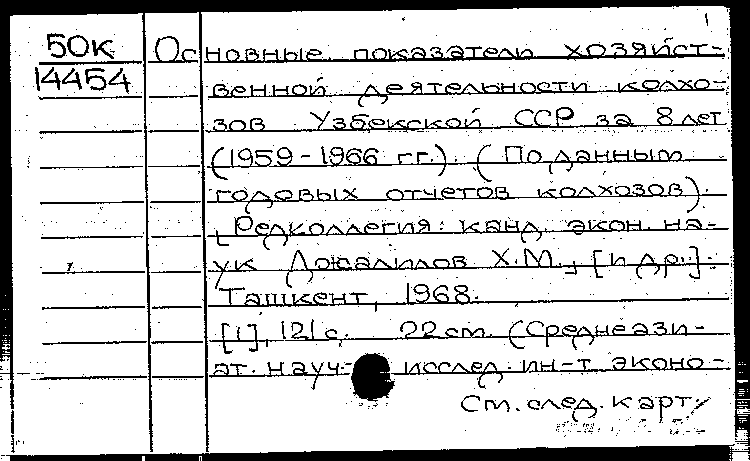 1
50к
14454
Основные показатели хозяйст-
венной деятельности колхо-
зов Узбекской ССР за 8 лет
(1959-1966 гг.). (По данным
годовых отчетов колхозов).
[Редколлегия: канд. экон. на-
ук Джалилов Х.М., [и др.].
Ташкент, 1968.
[1], 121 с. 22 см. (Среднеази-
ат. науч.- исслед. ин-т эконо-
См. след. карт.